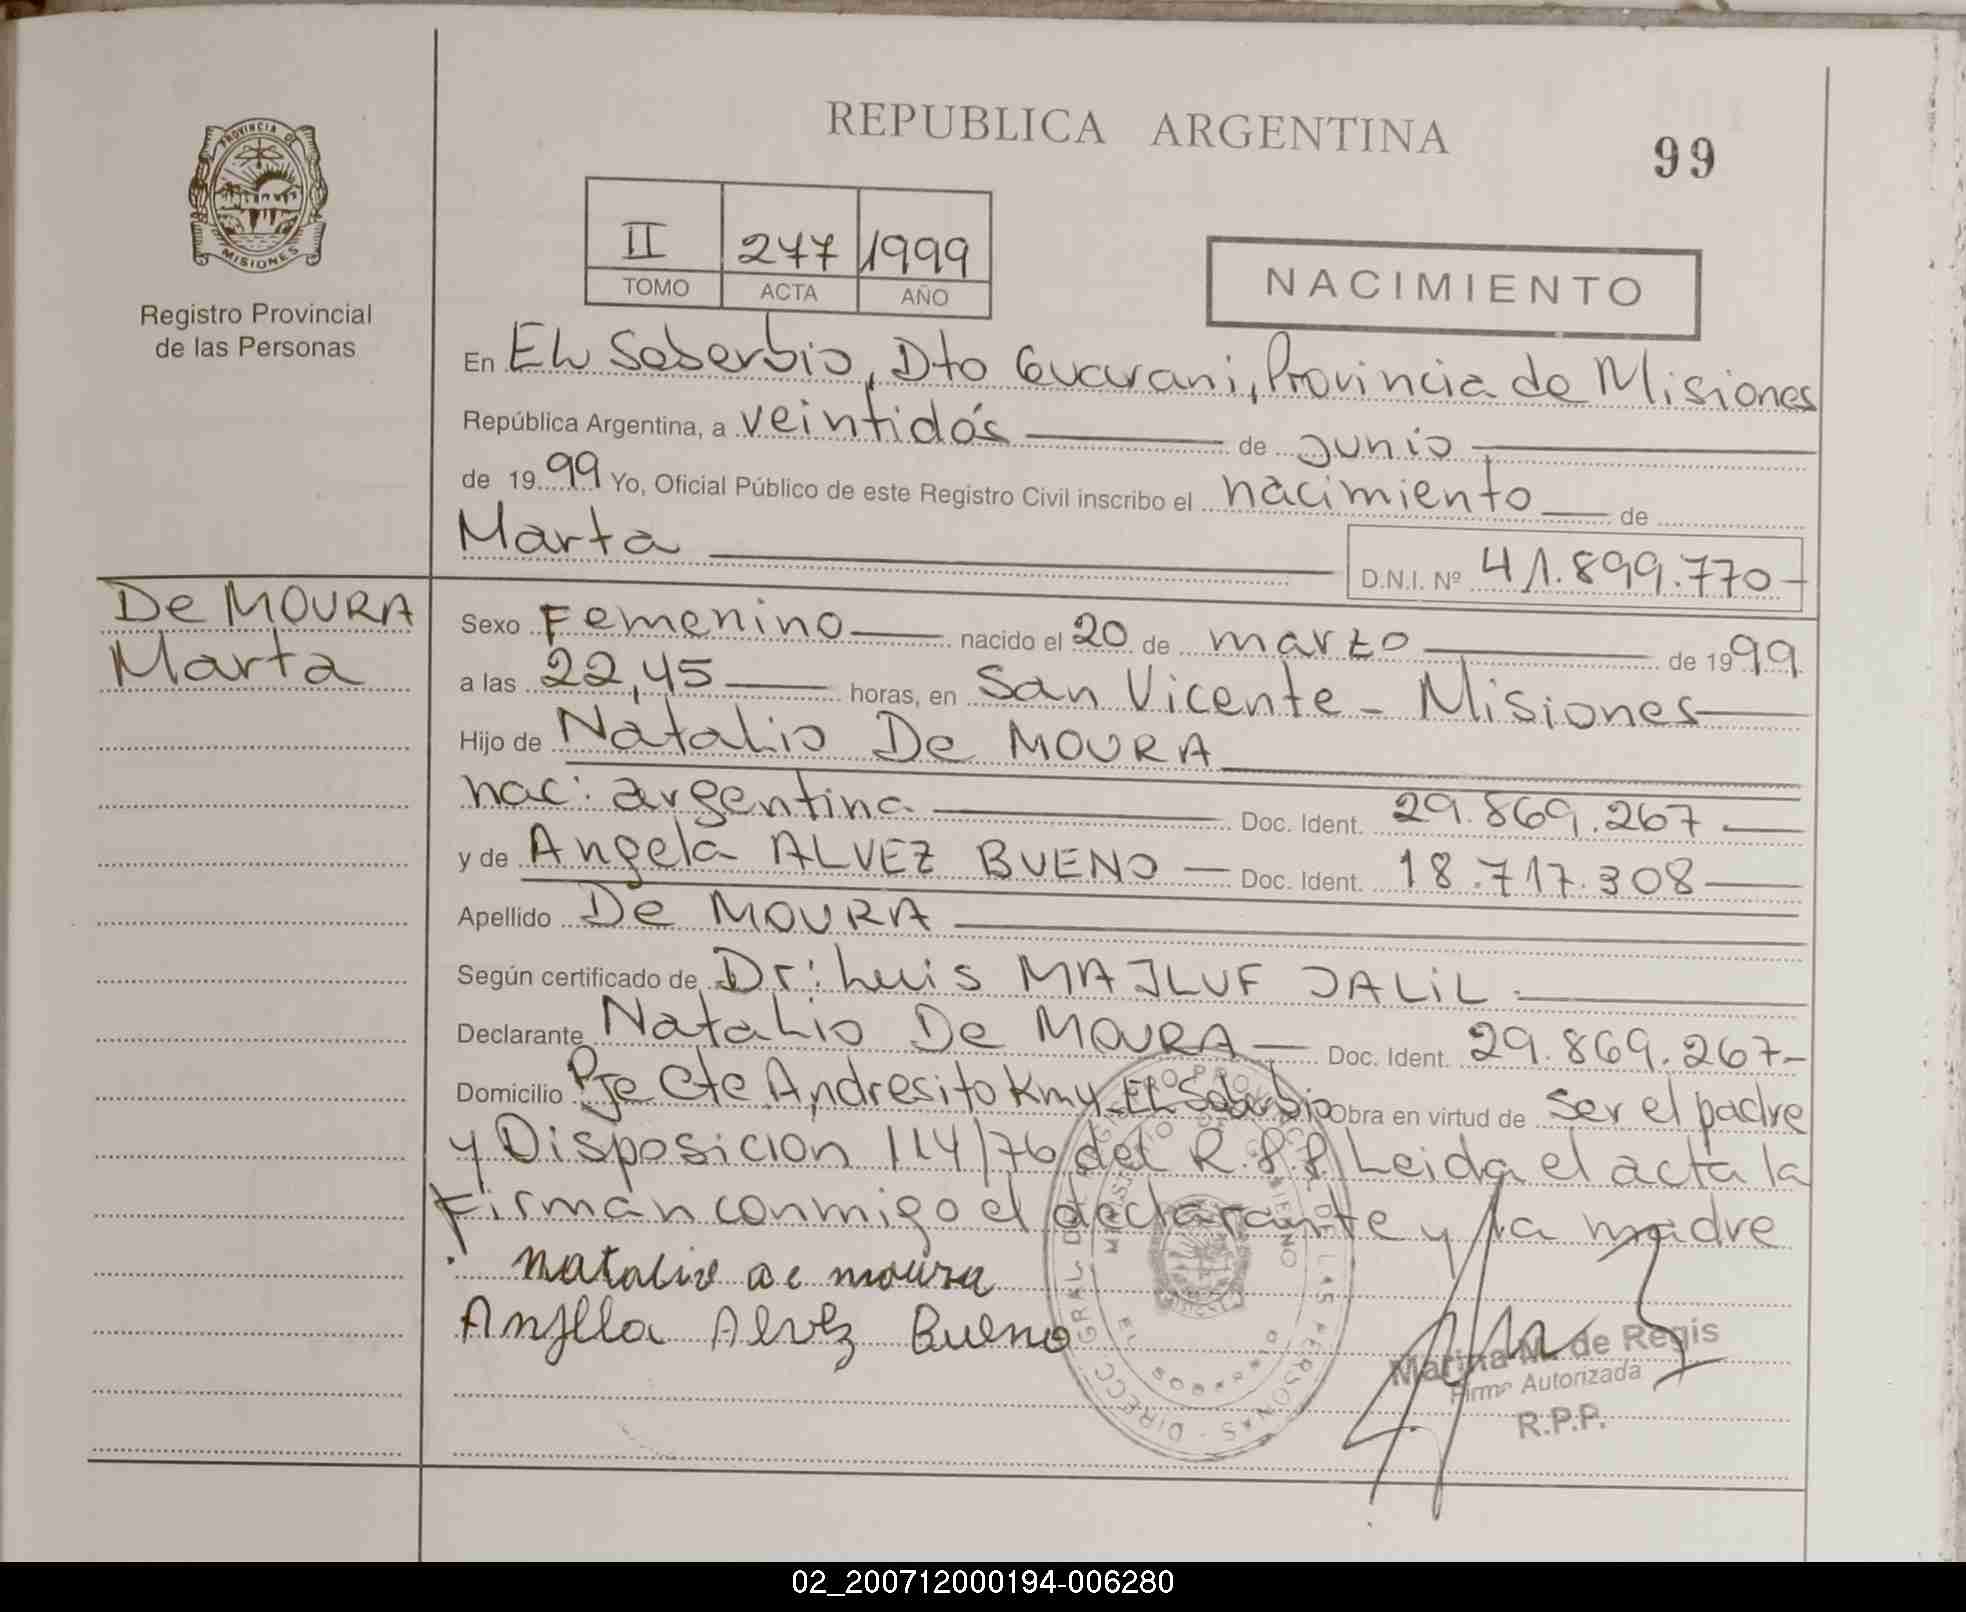 REPUBLICA ARGENTINA
99
PROVINCIA DE
MISIONES
Registro Provincial
de las Personas
II 277 1999
TOMO ACTA AÑO
NACIMIENTO
En El Soberbio, Dto Guarani, Provincia de Misiones
República Argentina, a veintidós de junio
de 1999 Yo, Oficial Público de este Registro Civil inscribo el nacimiento de
Marta
D.N.I. Nº 41.899.770-
De MOURA
Marta
Sexo Femenino nacido el 20 de marzo de 1999
a las 22,45 horas, en San Vicente - Misiones
Hijo de Natalio De MOURA
nac: argentina Doc. Ident. 29.869.267
y de Angela ALVEZ BUENO Doc. Ident. 18.717.308
Apellido De MOURA
Según certificado de Dr: Luis MAJLUF JALIL
Declarante Natalio De MOURA Doc. Ident. 29.869.267-
Domicilio Pje Cte Andresito Km4 El Soberbio Obra en virtud de ser el padre
y Disposicion 114/76 del R.P.P. Leida el acta la
firman conmigo el declarante y la madre
natalio de moura
Anjlla Alvez Bueno
DIRECC. GRAL DEL REGISTRO PROVINCIAL DE LAS PERSONAS
MINISTERIO DE GOBIERNO
EL SOBERBIO
MISIONES
Marina M. de Regis
Firma Autorizada
R.P.P.
02_200712000194-006280